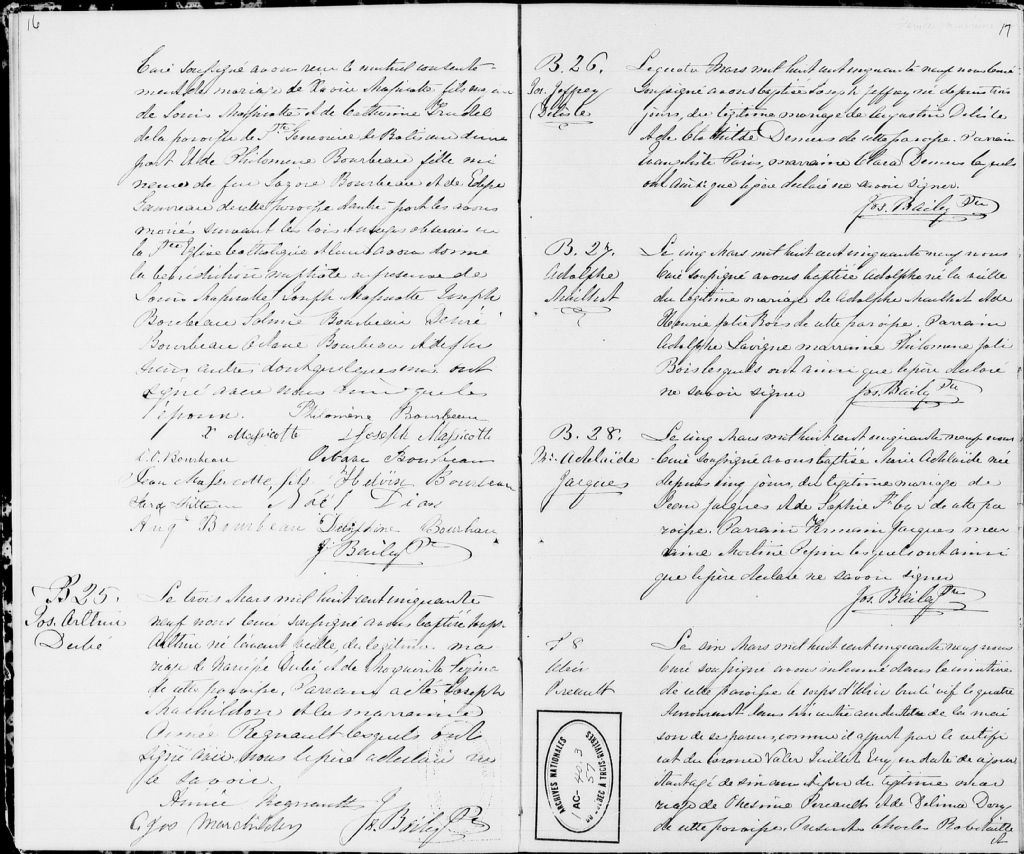 16
Curé soussigné avons reçu le mutuel consente-
ment de mariage de Xavier Massicotte fils majeur
de Louis Massicotte et de Catherine Trudel
de la paroisse de Ste Genevieve de Batiscan d'une
part et de Philomene Bourbeau fille mi
neure de feu Lazare Bourbeau et de
Gauvreau de cette paroisse d'autre part les avons
mariés suivant les lois et usages observés en
la Ste Eglise Catholique et leur avons donné
la benediction nuptiale en presence de
Louis Massicotte Joseph Massicotte Joseph
Bourbeau Bourbeau Desiré
Bourbeau Octave Bourbeau et de plu
sieurs autres dont quelques uns ont
signé avec nous ainsi que les
époux. Philomène Bourbeau
X Massicotte Joseph Massicotte
Bourbeau Octave Bourbeau
Jean Massicotte fils Héloïse Bourbeau
Noël Dion
Aug Bourbeau Delphine Bourbeau
J Baily Ptre
B 25.
Jos. Arthur
Dubé
Le trois Mars mil huit cent cinquante
neuf nous Curé soussigné avons baptisé Joseph
Arthur né du légitime ma
riage de Dubé et de Marguerite
de cette paroisse. Parrain a été Joseph
Marchildon et la marraine
Aimée Regnault lesquels ont
signé avec nous le père a declaré ne
le savoir
Aimée Regnault
Marchildon Js. Baily Ptre
17
B. 26.
Jos. Jeffrey
Delisle
Le quatre Mars mil huit cent cinquante neuf nous Curé
soussigné avons baptisé Joseph Jeffrey né depuis trois
jours, du légitime mariage de Augustin Delisle
et de Clothilde Demers de cette paroisse. Parrain
Paris, marraine Clara Demers lesquels
ont ainsi que le père declaré ne savoir signer.
Jos. Baily Ptre
B. 27.
Adolphe
Mailhot
Le cinq Mars mil huit cent cinquante neuf nous
Curé soussigné avons baptisé Adolphe né la veille
du légitime mariage de Adolphe Mailhot et de
Henrie Joli Bois de cette paroisse. Parrain
Adolphe Lavigne marraine Philomene Joli
Bois lesquels ont ainsi que le père declaré
ne savoir signer Jos. Baily Ptre
B. 28.
M. Adelaïde
Jacques
Le cinq Mars mil huit cent cinquante neuf nous
Curé soussigné avons baptisé Marie Adelaide née
depuis cinq jours, du légitime mariage de
Jacques et de Sophie St Cyr de cette pa
roisse. Parrain Germain Jacques mar
raine Martine Pepin lesquels ont ainsi
que le père declaré ne savoir signer
Jos. Baily Ptre
S 8
Alein
Pereault
Le six Mars mil huit cent cinquante neuf nous
Curé soussigné avons inhumé dans le cimetière
de cette paroisse le corps d'Alein brulé vif le quatre
courant dans l'incendie de la mai
son de ses parens, comme il appert par le certifi
cat du Coroner Valer Guillet Ecr, en date de ce jour
agé de cinq ans de légitime mar
riage de Onesime Perreault et de Delima Dery
de cette paroisse. Presents Charles Robitaille
et
ARCHIVES NATIONALES
DU QUÉBEC À TROIS-RIVIÈRES
AC- 40.3
57